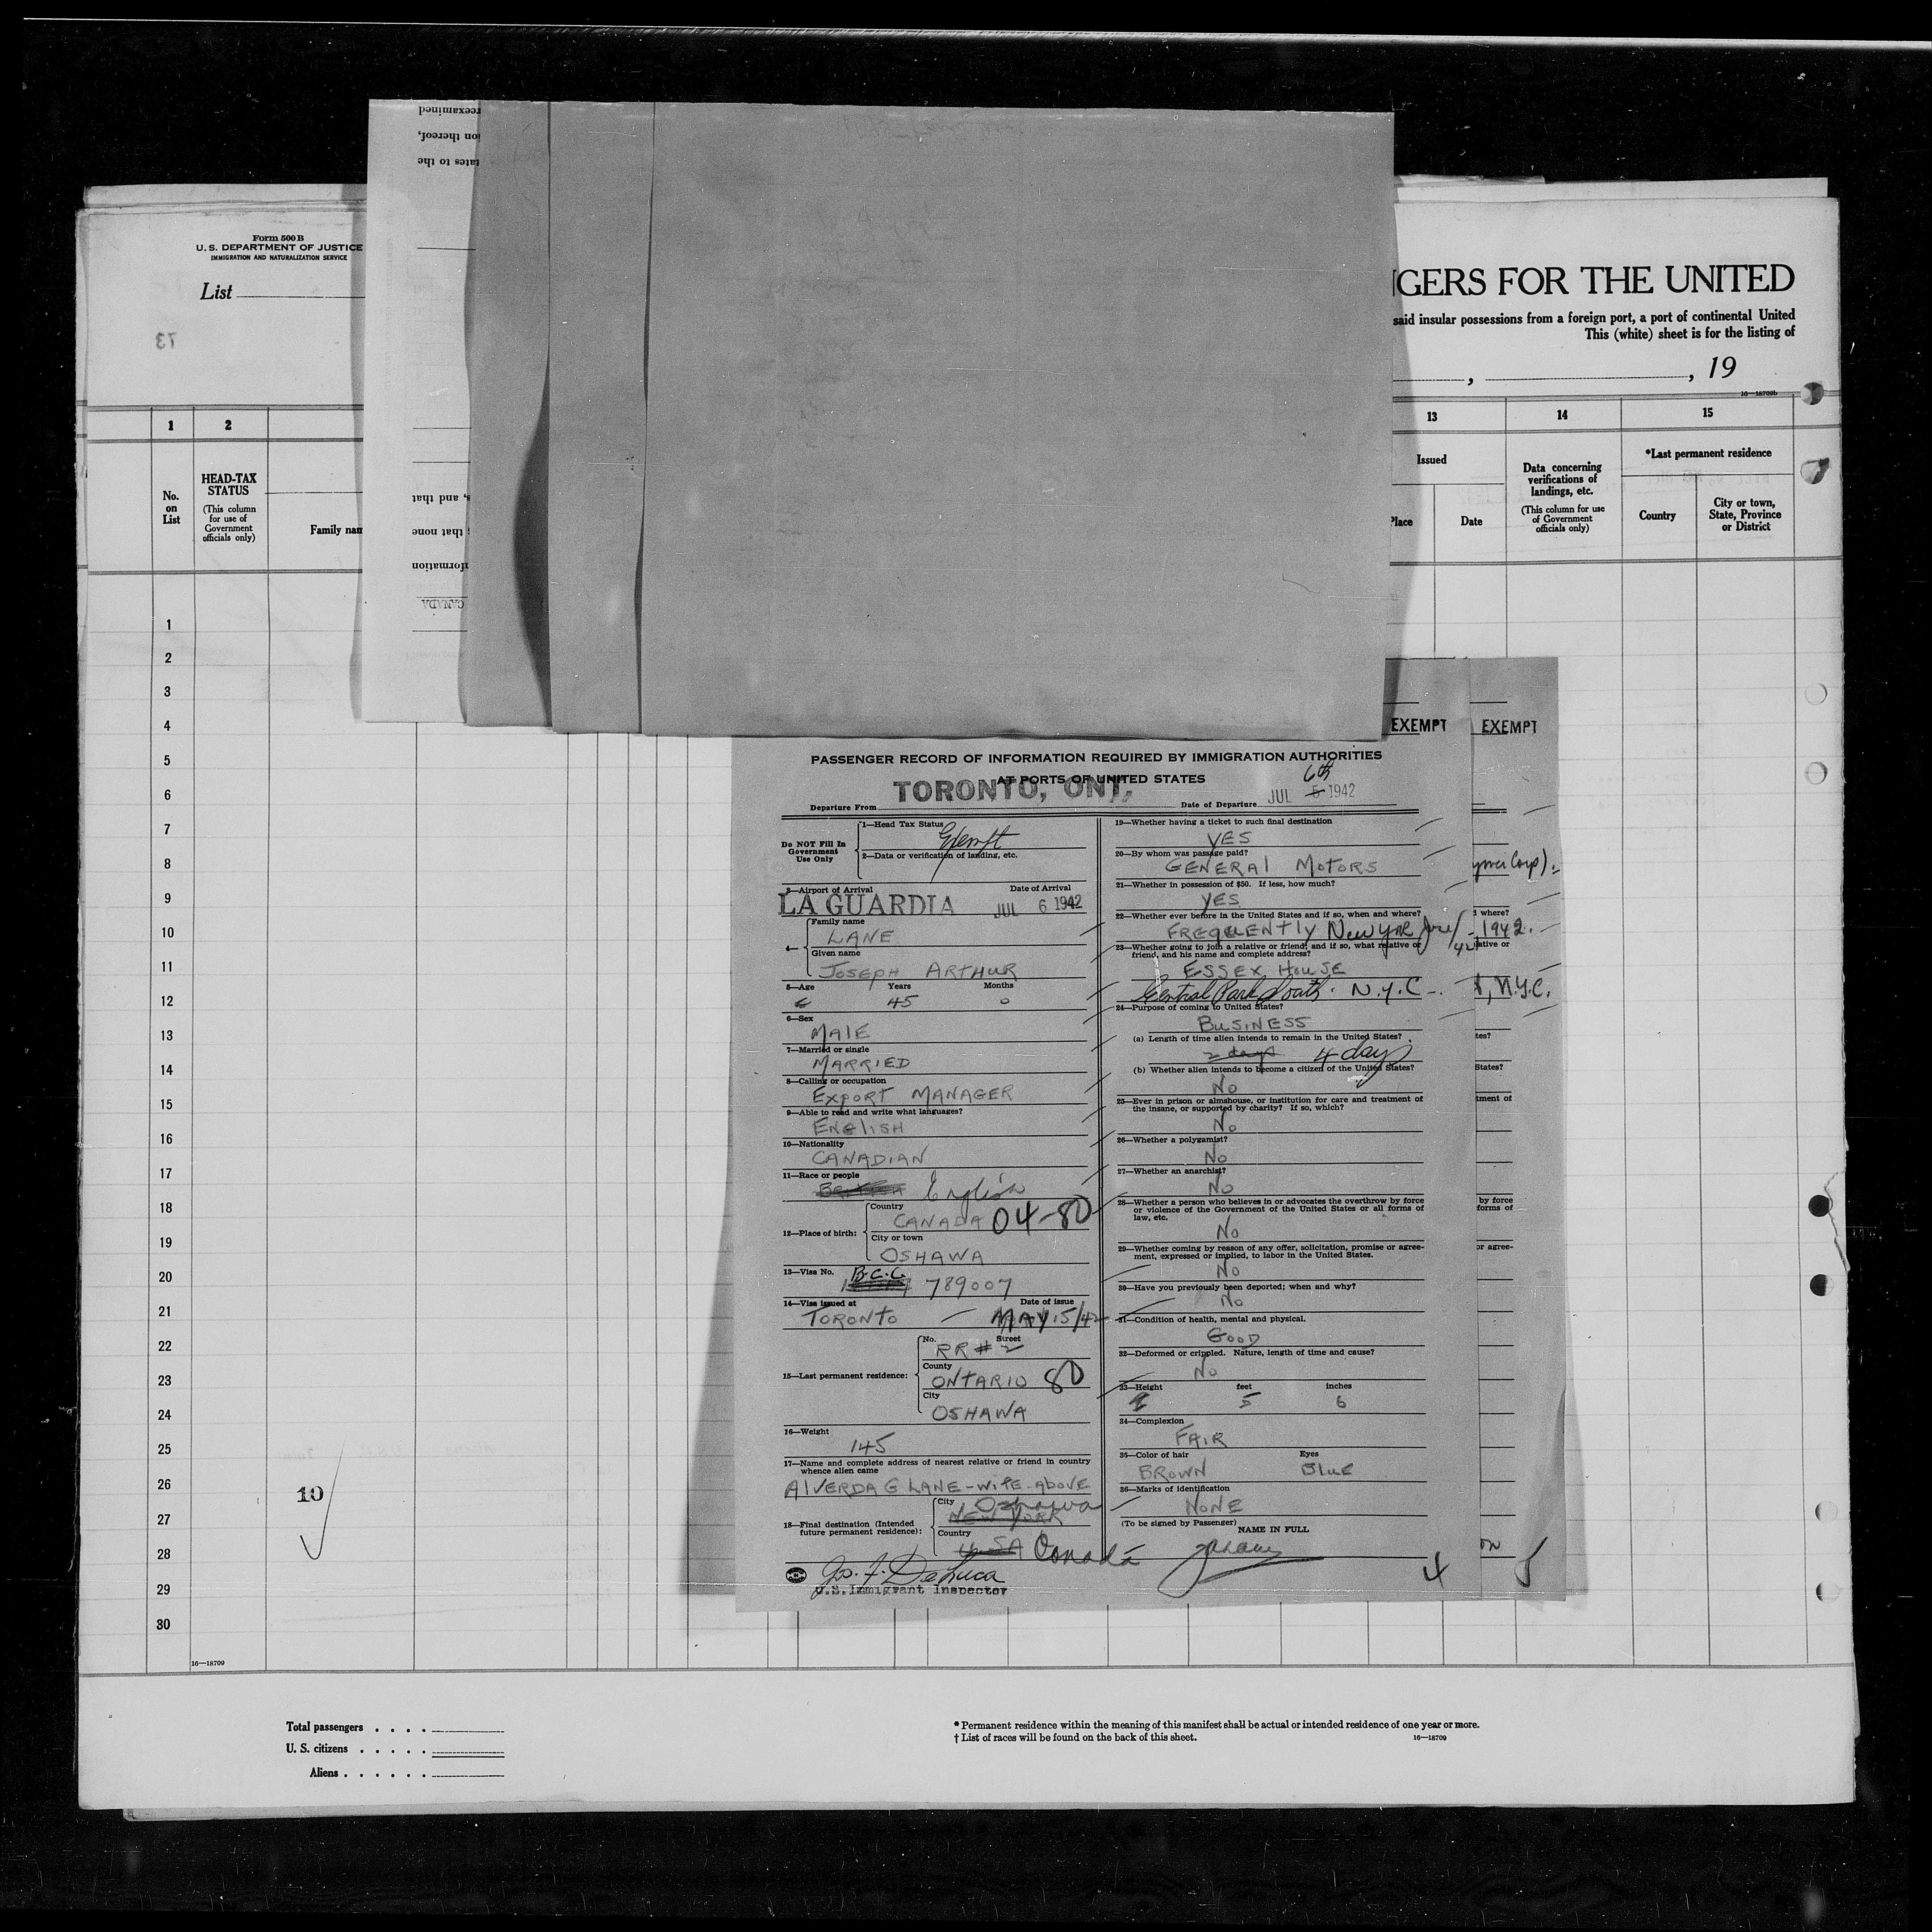 Form 500 B
U. S. DEPARTMENT OF JUSTICE
IMMIGRATION AND NATURALIZATION SERVICE
List
73
reexamined
ion thereof,
tates to the
s, and that
that none
formation
CANADA
NGERS FOR THE UNITED
said insular possessions from a foreign port, a port of continental United
This (white) sheet is for the listing of
, , 19
16—18709b
1 2 13 14 15
No. on List
HEAD-TAX STATUS
(This column for use of Government officials only)
Family nam
Issued
Place
Date
Data concerning verifications of landings, etc.
(This column for use of Government officials only)
*Last permanent residence
Country
City or town, State, Province or District
1
2
3
4
5
6
7
8
9
10
11
12
13
14
15
16
17
18
19
20
21
22
23
24
25
26
27
28
29
30
10
16—18709
EXEMPT
EXEMPT
PASSENGER RECORD OF INFORMATION REQUIRED BY IMMIGRATION AUTHORITIES
AT PORTS OF UNITED STATES
Departure From TORONTO, ONT. Date of Departure JUL 5 6th 1942
Do NOT Fill In Government Use Only
1—Head Tax Status Exempt
2—Data or verification of landing, etc.
3—Airport of Arrival Date of Arrival
LA GUARDIA JUL 6 1942
4—
Family name
LANE
Given name
JOSEPH ARTHUR
5—Age Years Months
45 0
6—Sex
MALE
7—Married or single
MARRIED
8—Calling or occupation
EXPORT MANAGER
9—Able to read and write what languages?
ENGLISH
10—Nationality
CANADIAN
11—Race or people
English
12—Place of birth:
Country
CANADA 04-80
City or town
OSHAWA
13—Visa No. B.C.C.
789007
14—Visa issued at Date of issue
TORONTO — MAY 15/42
15—Last permanent residence:
No. Street
RR # 2
County
ONTARIO 80
City
OSHAWA
16—Weight
145
17—Name and complete address of nearest relative or friend in country
whence alien came
ALVERDA G LANE - WIFE - ABOVE
18—Final destination (Intended future permanent residence):
City Oshawa
NEW YORK
Country
USA Canada
Jos. F. DeLuca
U.S. Immigrant Inspector
19—Whether having a ticket to such final destination
YES
20—By whom was passage paid?
GENERAL MOTORS
21—Whether in possession of $50. If less, how much?
YES
22—Whether ever before in the United States and if so, when and where?
FREQUENTLY New York June/42
23—Whether going to join a relative or friend; and if so, what relative or
friend, and his name and complete address?
ESSEX HOUSE
Central Park South. N.Y.C -
24—Purpose of coming to United States?
BUSINESS
(a) Length of time alien intends to remain in the United States?
2 days 4 days
(b) Whether alien intends to become a citizen of the United States?
No
25—Ever in prison or almshouse, or institution for care and treatment of
the insane, or supported by charity? If so, which?
No
26—Whether a polygamist?
No
27—Whether an anarchist?
No
28—Whether a person who believes in or advocates the overthrow by force
or violence of the Government of the United States or all forms of
law, etc.
No
29—Whether coming by reason of any offer, solicitation, promise or agree-
ment, expressed or implied, to labor in the United States.
No
30—Have you previously been deported; when and why?
No
31—Condition of health, mental and physical.
GOOD
32—Deformed or crippled. Nature, length of time and cause?
No
33—Height feet inches
5 6
34—Complexion
FAIR
35—Color of hair Eyes
BROWN BLUE
36—Marks of identification
NONE
(To be signed by Passenger)
NAME IN FULL
4
Corp).
d where?
1942.
lative or
N.Y.C.
tes?
States?
tment of
by force
forms of
or agree-
on
5
Total passengers . . . .
U. S. citizens . . . . .
Aliens . . . . . .
* Permanent residence within the meaning of this manifest shall be actual or intended residence of one year or more.
† List of races will be found on the back of this sheet.
16—18709